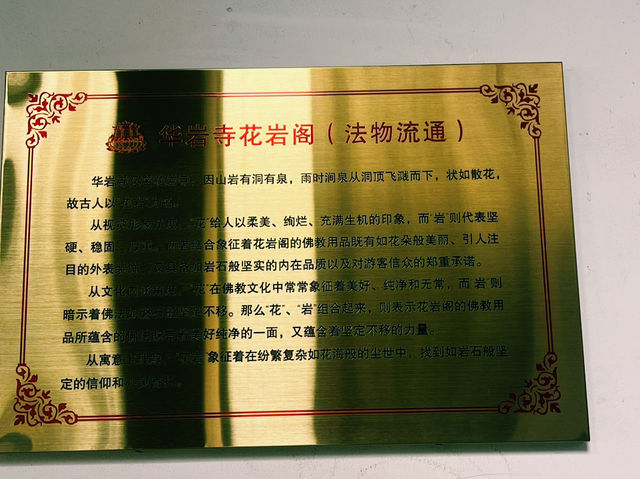 华岩寺花岩阁（法物流通）
华岩 因山岩有洞有泉，雨时涧泉从洞顶飞溅而下，状如散花，
故古人以
从视 花”给人以柔美、绚烂、充满生机的印象，而“岩”则代表坚
硬、稳固、 结合象征着花岩阁的佛教用品既有如花朵般美丽、引人注
目的外表 岩石般坚实的内在品质以及对游客信众的郑重承诺。
从文化 花”在佛教文化中常常象征着美好、纯净和无常，而“岩”则
暗示着佛法 坚定不移。那么“花”、“岩”组合起来，则表示花岩阁的佛教用
品所蕴含的 美好纯净的一面，又蕴含着坚定不移的力量。
从寓意 岩”象征着在纷繁复杂如花海般的尘世中，找到如岩石般坚
定的信仰和